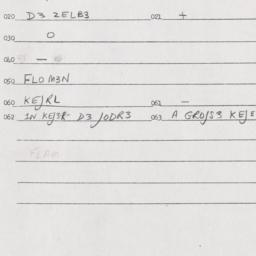 020 D3 ZELB3 021 +
030 O
040 —
050 FLOM3N
060 KEJRL 061 —
062 IN KEJ3R D3 JODR3 063 A GROJS3 KEJE
FLAM